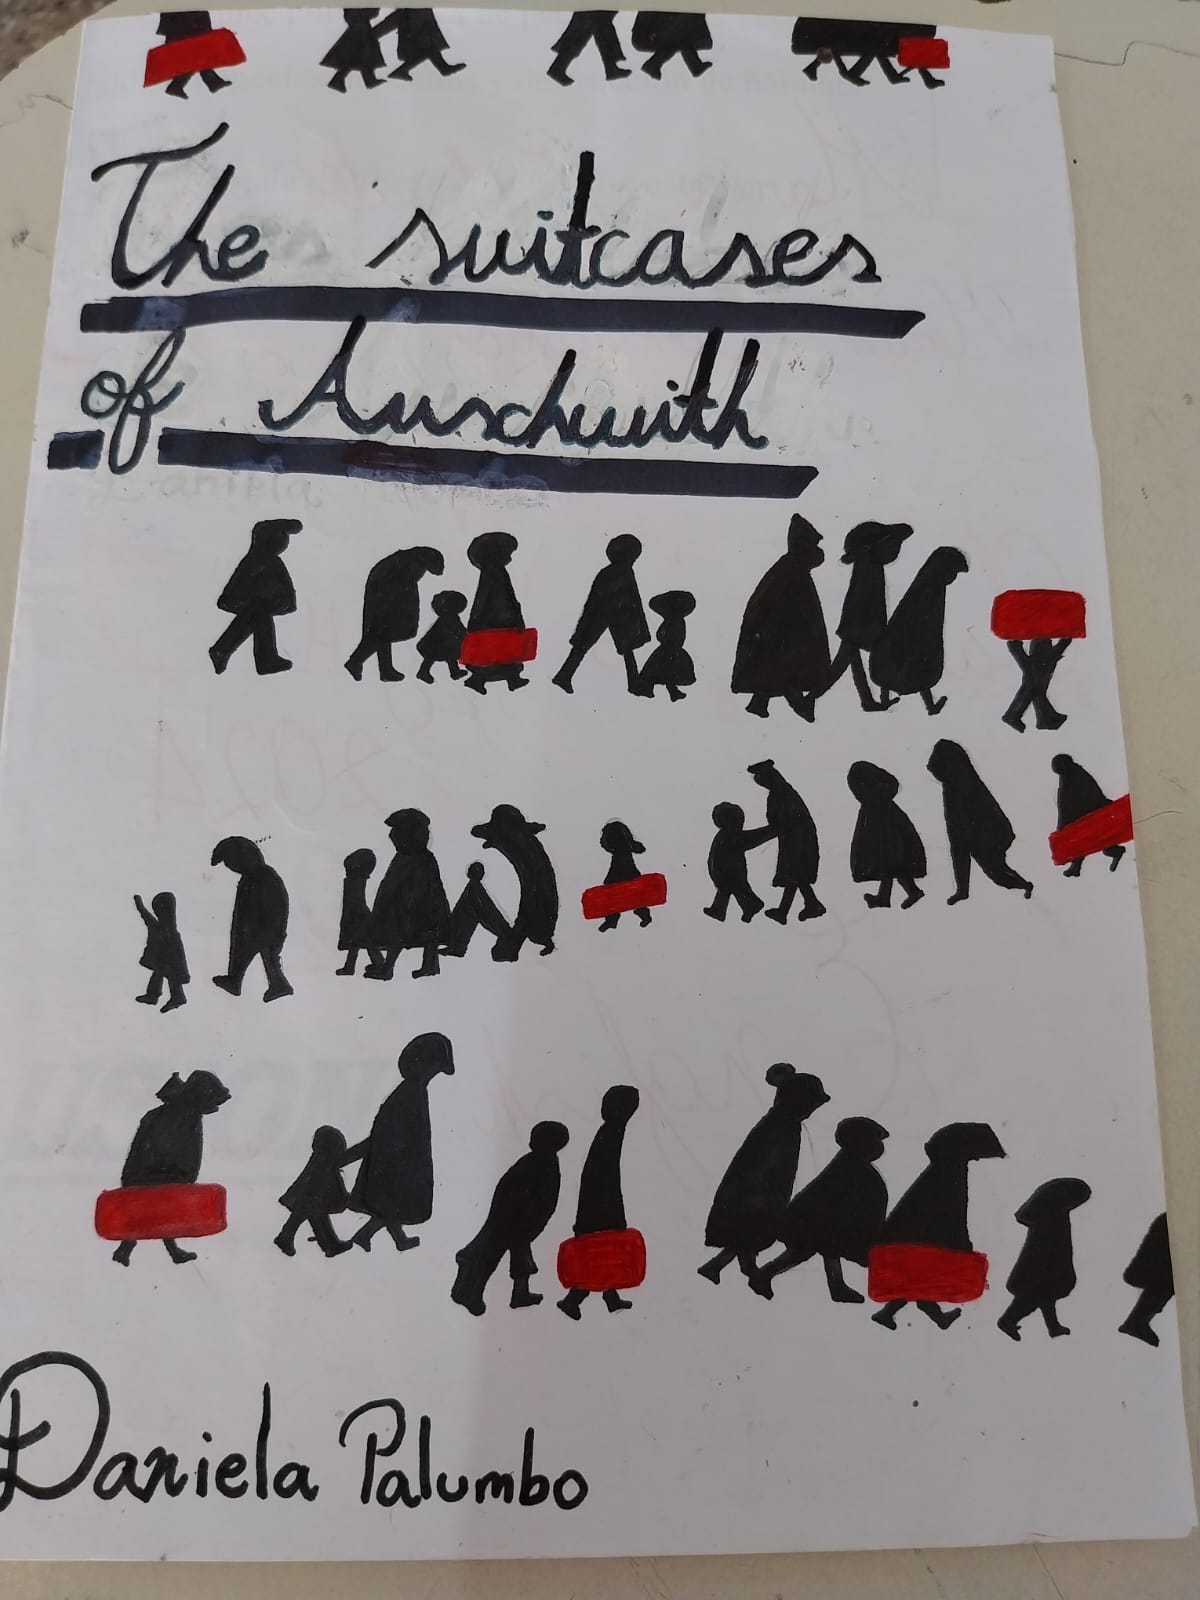 The suitcases
of Auschwith
Daniela Palumbo